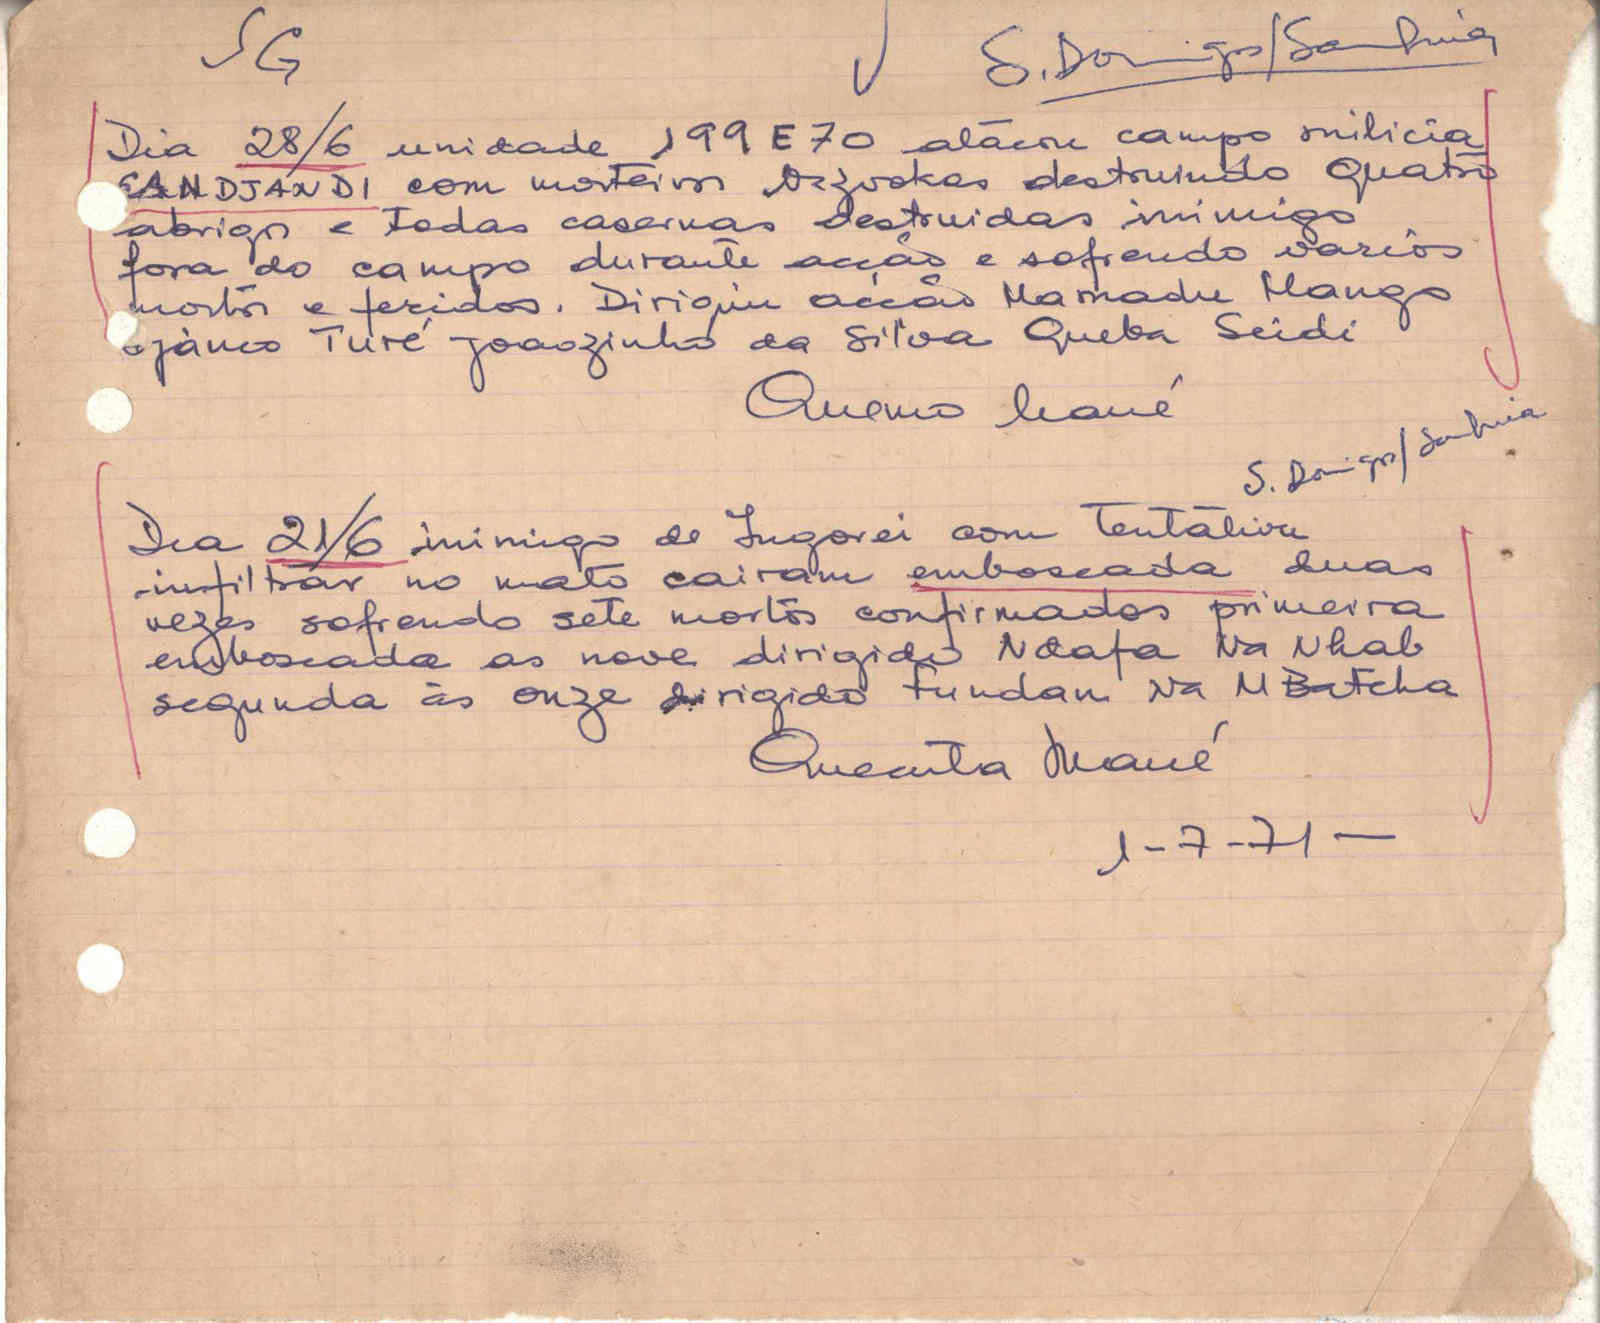 SG
S. Domigos/Sambuia
Dia 28/6 unidade 199 E 70 atacou campo milicia
CANDJANDI com morteiros bazookas destruindo Quatro
abrigos e todas casernas destruidas inimigo
fora do campo durante acção e sofrendo varios
mortos e feridos. Dirigiu acção Mamadu Mango
Turé Joaozinho da Silva Queba Seidi
Quemo Mané
S. Domigos/Sambuia
Dia 21/6 inimigo de Ingorei com tentativa
infiltrar no mato cairam emboscada duas
vezes sofrendo sete mortos confirmados primeira
emboscada as nove dirigido Ndafa Na Nhab
segunda às onze dirigido Fundam Na MBatcha
Mané
1-7-71 —